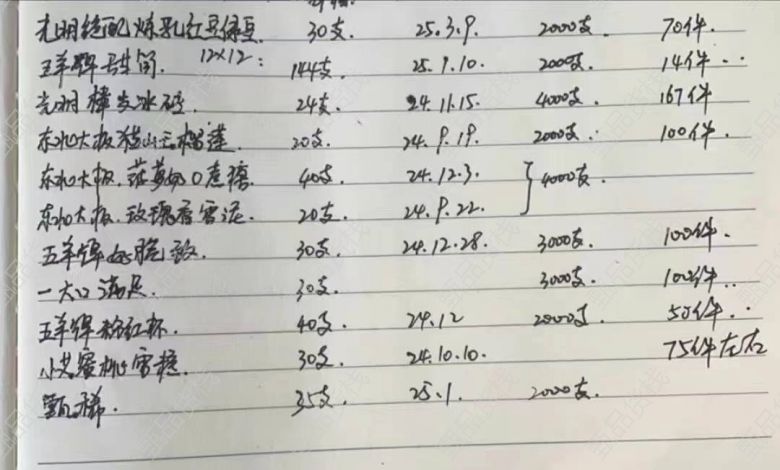 光明绝配炼乳红豆绿豆 30支. 25.3.9. 2000支 70件.
五羊牌甜筒. 12×12: 144支. 25.9.10. 2000支. 14件..
光明棒冰砖. 24支. 24.11.15. 4000支. 167件
东北大板猫山王榴莲. 20支. 24.9.19. 2000支. 100件.
东北大板. 焦糖 40支. 24.12.3. } 4000支.
东北大板.玫瑰香雪泥. 20支. 24.9.22.
五羊牌脆 30支. 24.12.28. 3000支. 100件.
一大口满足 30支. 3000支. 100件..
五羊牌粉红杯. 40支. 24.12 2000支. 50件..
蜜桃雪糕. 30支. 24.10.10. 75件左右
甄稀. 35支. 25.1. 2000支.